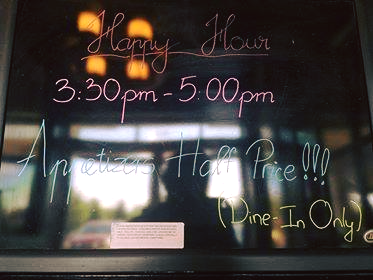 Happy Hour
3:30pm - 5:00pm
Appetizers Half Price!!!
(Dine-In Only)